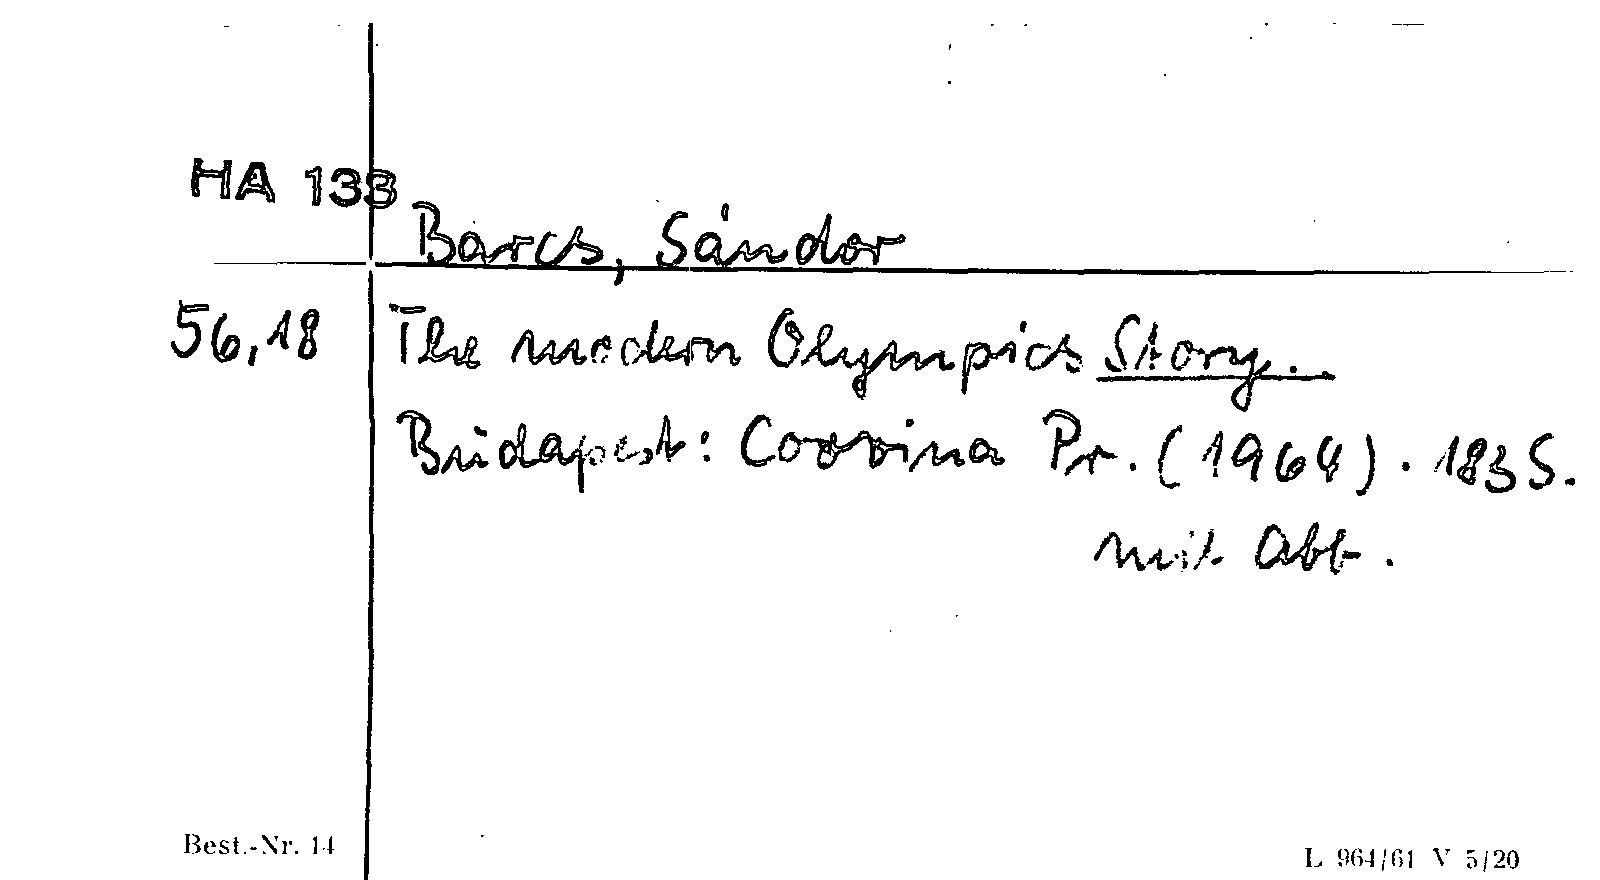 HA 133
Barcs, Sándor
56,18
The modern Olympics Story..
Budapest: Corvina Pr. (1964). 183 S.
mit Abb.
Best.-Nr. 14
L 964/61 V 5/20